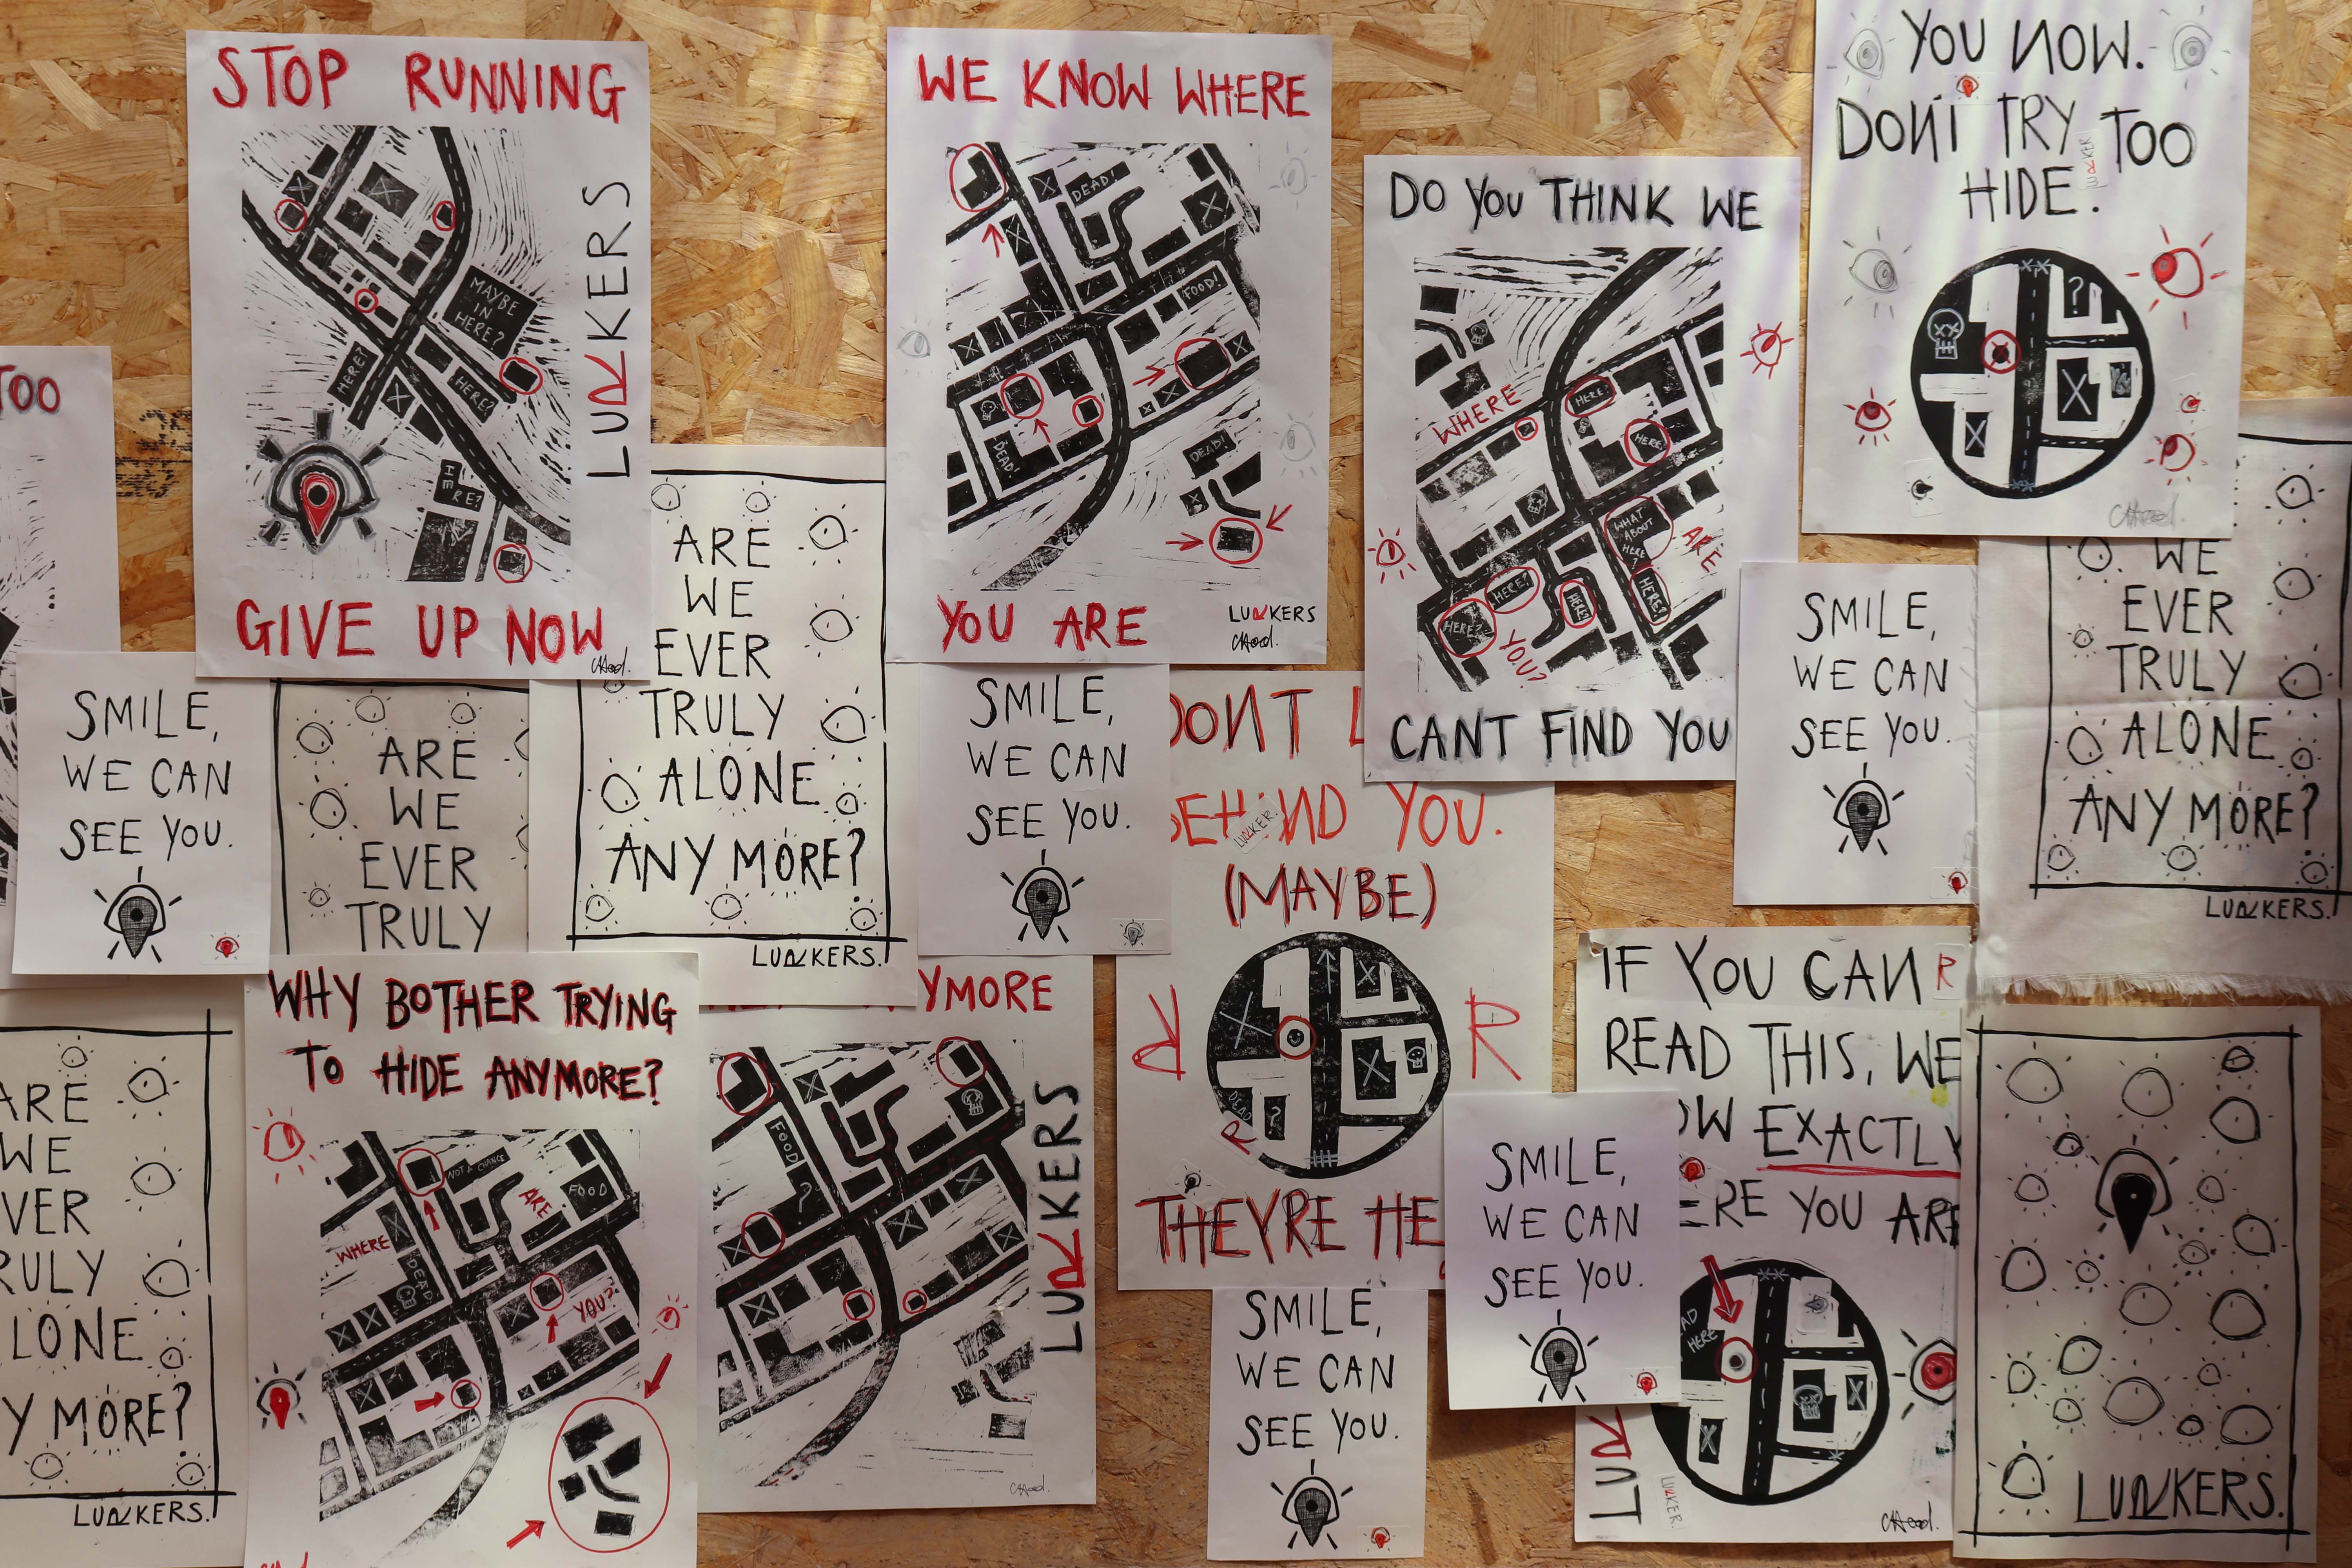 STOP RUNNING
MAYBE
IN
HERE?
HERE?
HERE?
HE
RE?
LURKERS
GIVE UP NOW
WE KNOW WHERE
DEAD!
FOOD!
DEAD!
DEAD!
YOU ARE
LURKERS
DO YOU THINK WE
WHERE
HERE?
HERE?
WHAT
ABOUT
HERE?
ARE
HERE?
HERE?
HERE?
HERE?
YOU?
CANT FIND YOU
YOU NOW.
DON'T TRY TOO
LURKER
HIDE.
?
TOO
SMILE,
WE CAN
SEE YOU.
ARE
WE
EVER
TRULY
ARE
WE
EVER
TRULY
ALONE
ANY MORE?
LURKERS.
SMILE,
WE CAN
SEE YOU.
DONT L
BEHIND YOU.
LURKER.
(MAYBE)
R R
DEAD
?
R
THEYRE HE
SMILE,
WE CAN
SEE YOU.
WE
EVER
TRULY
ALONE
ANY MORE?
LURKERS.
ARE
WE
VER
RULY
LONE
Y MORE?
LURKERS.
WHY BOTHER TRYING
TO HIDE ANYMORE?
NOT A CHANCE
ARE
FOOD
WHERE
DEAD
YOU?
YMORE
FOOD
?
LURKERS
SMILE,
WE CAN
SEE YOU.
SMILE,
WE CAN
SEE YOU.
IF YOU CAN R
READ THIS, WE
OW EXACTLY
ERE YOU ARE
AD
HERE
LUR
LURKER.
LURKERS.